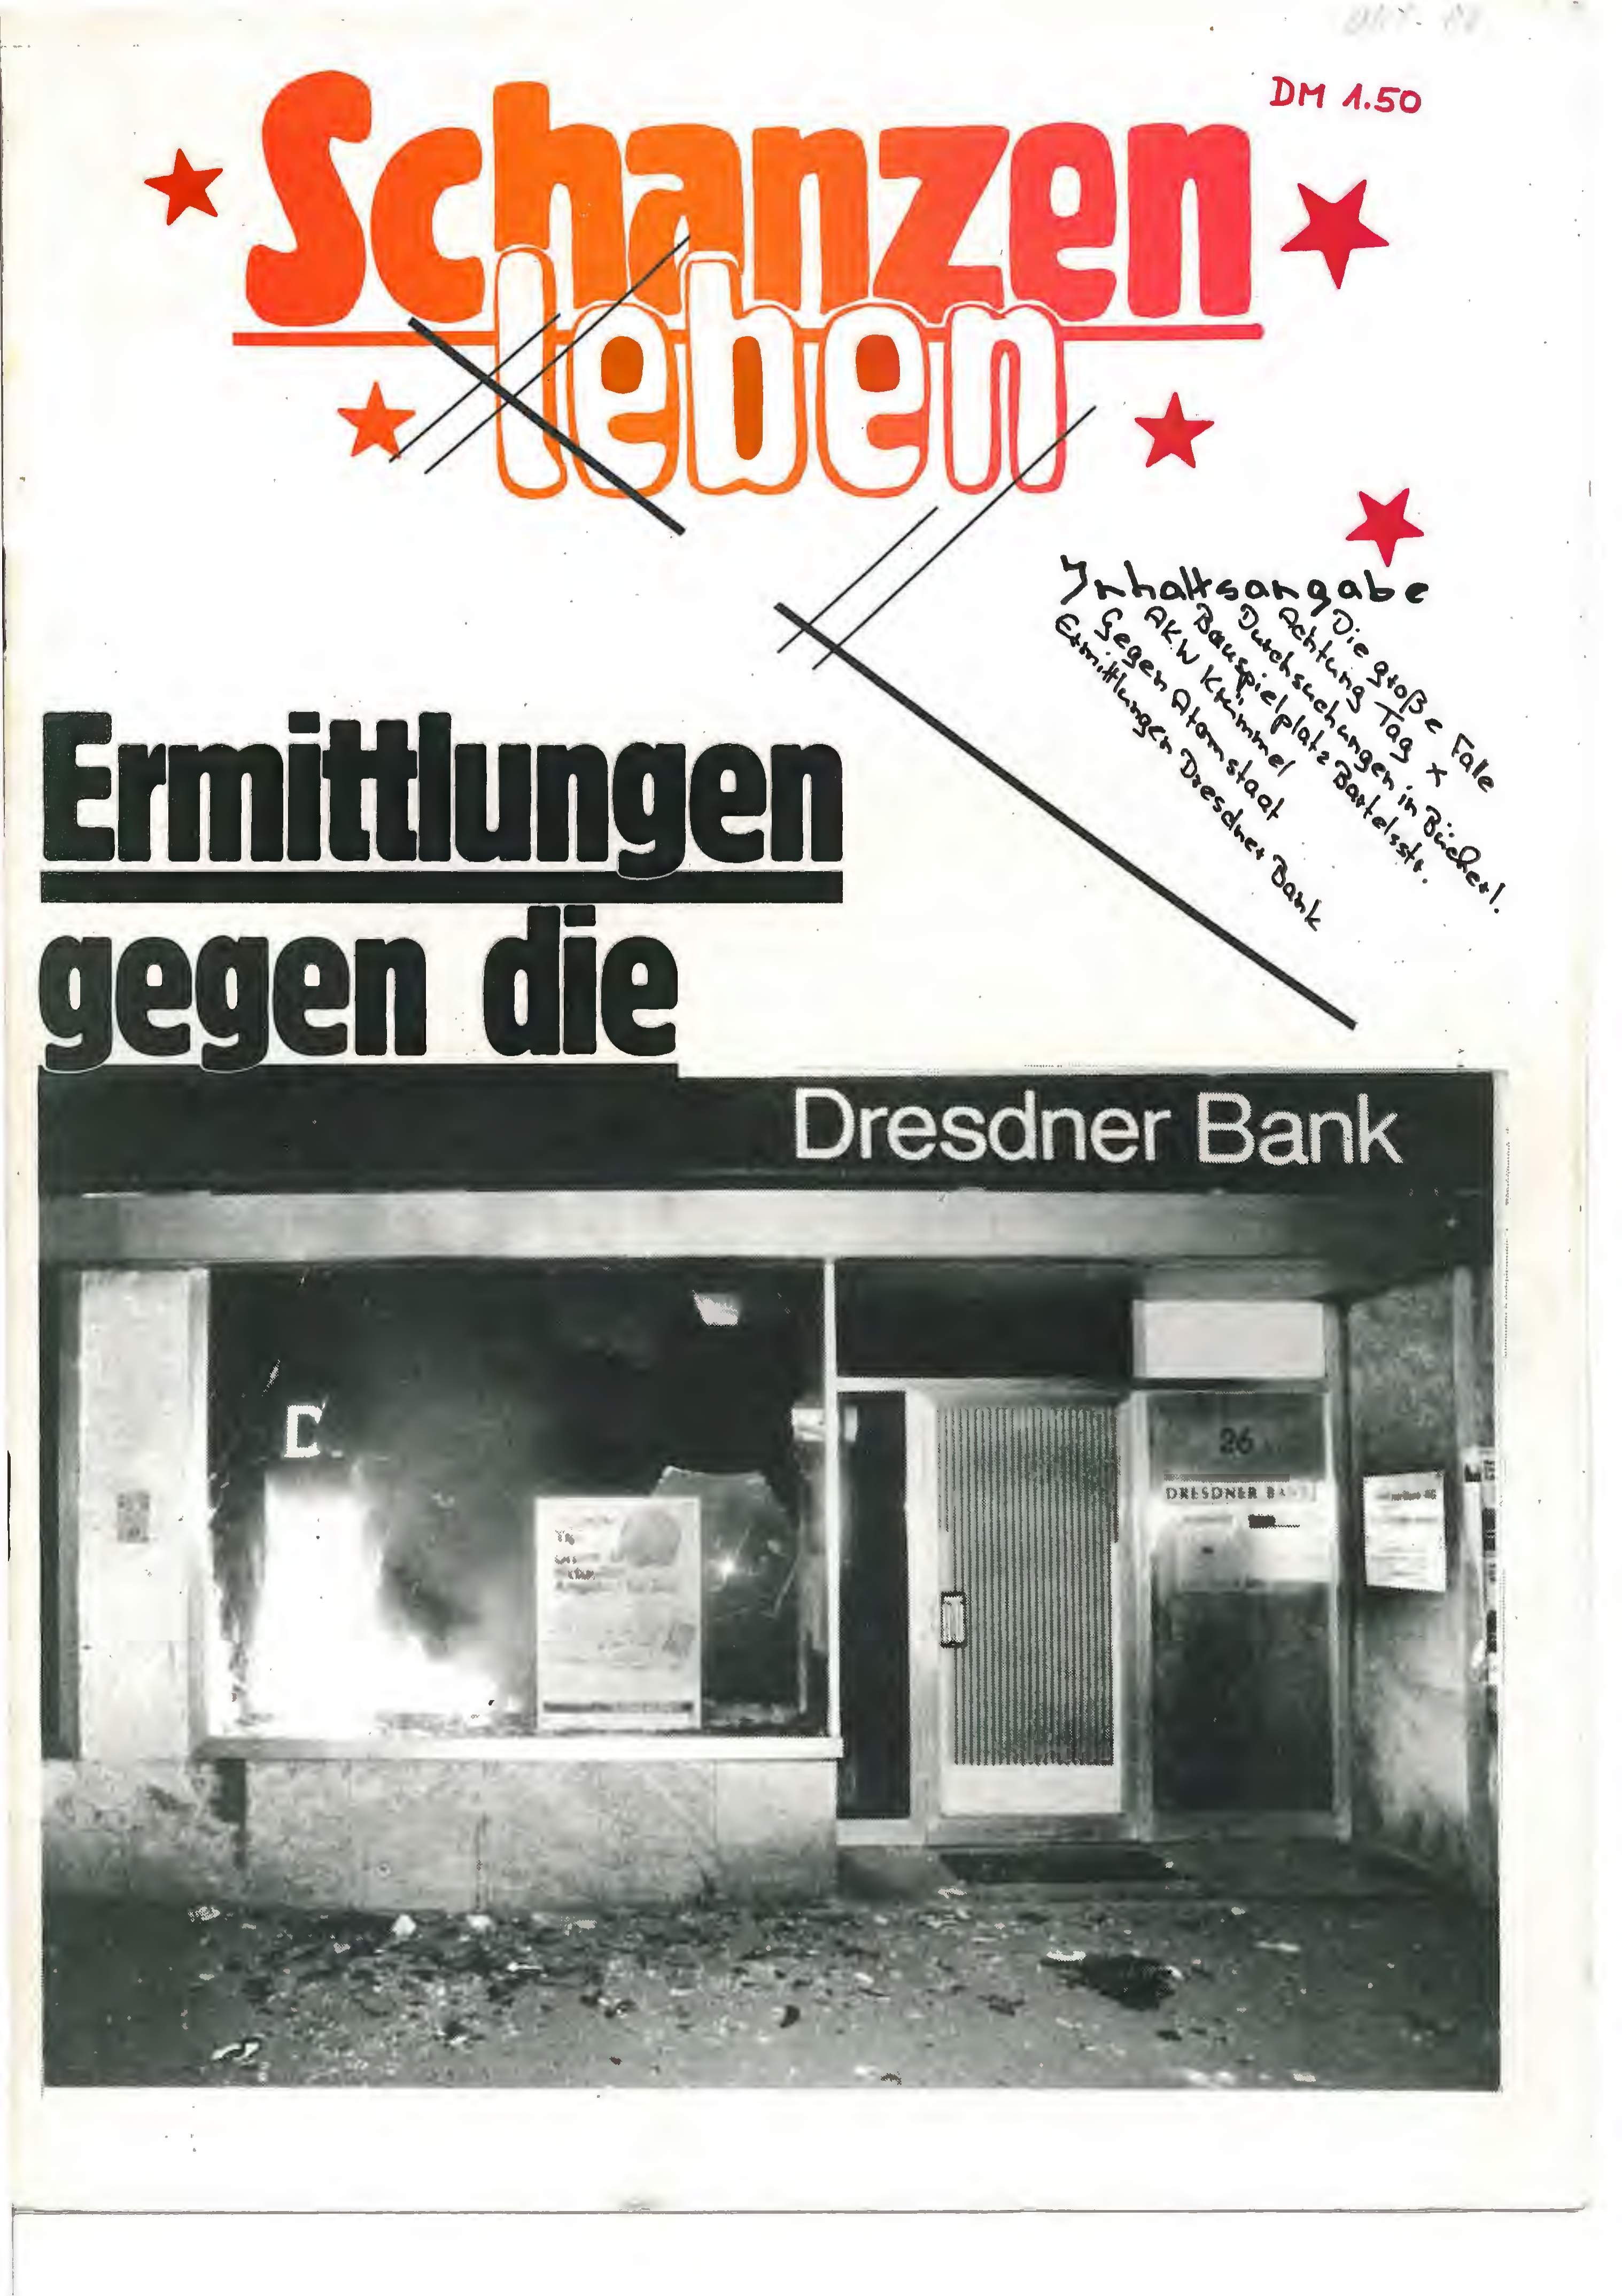 DM 1.50
Schanzen
leben
Inhaltsangabe
Die große Falle
Achtung Tag x
Durchsuchungen in Bücherl.
Bauspielplatz Bartelsstr.
AKW Krümmel
Gegen Atomstaat
Ermittlungen Dresdner Bank
Ermittlungen
gegen die
Dresdner Bank
D
26
DRESDNER BANK